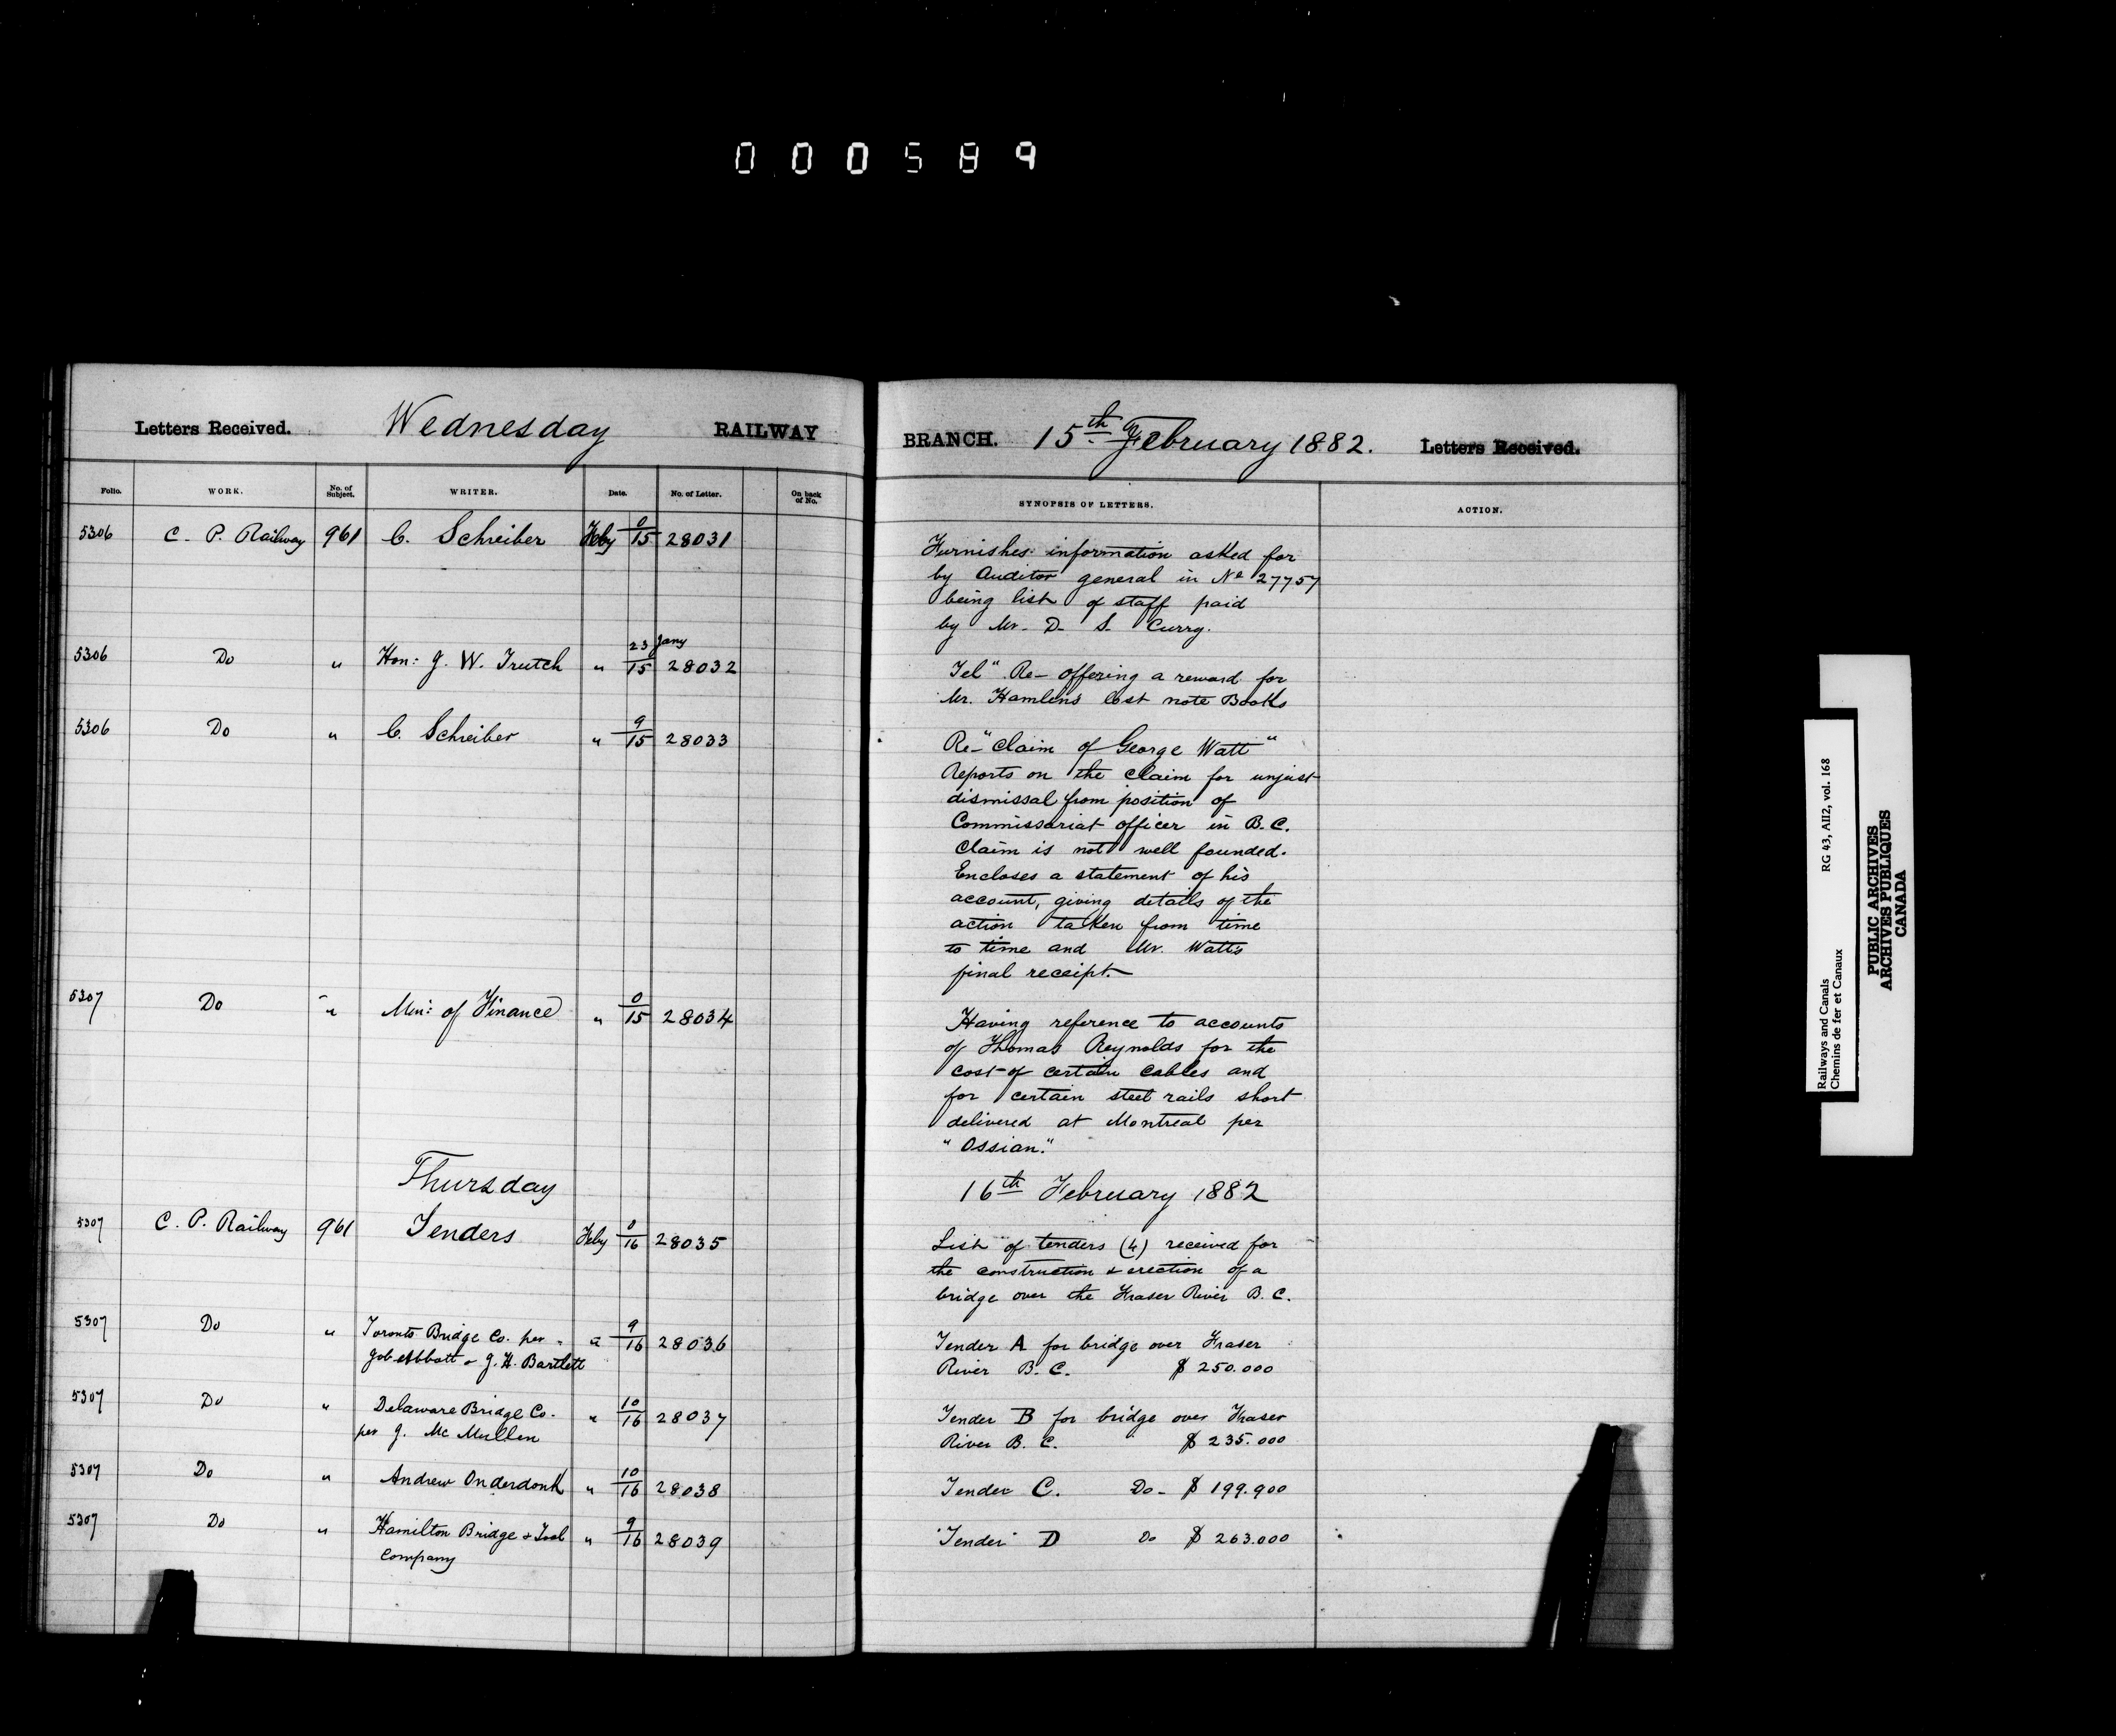 000589
Letters Received. Wednesday RAILWAY
Folio. WORK. No. of Subject. WRITER. Date. No. of Letter. On back of No.
5306 C. P. Railway 961 C. Schreiber Feby 0/15 28031
5306 Do " Hon: J. W. Trutch " 23 Jany/15 28032
5306 Do " C. Schreiber " 9/15 28033
5307 Do " Min: of Finance " 0/15 28034
Thursday
5307 C. P. Railway 961 Tenders Feby 0/16 28035
5307 Do " Toronto Bridge Co. per " 9/16 28036
Job Abbott & J. H. Bartlett
5307 Do " Delaware Bridge Co. " 10/16 28037
per J. Mc Mullen
5307 Do " Andrew Onderdonk " 10/16 28038
5307 Do " Hamilton Bridge & Tool " 9/16 28039
Company
BRANCH. 15th February 1882. Letters Received.
SYNOPSIS OF LETTERS. ACTION.
Furnishes information asked for
by Auditor general in No 27757
being list of staff paid
by Mr. D. S. Curry.
Tel" Re- offering a reward for
Mr. Hamlin's lost note Books
Re-"Claim of George Watt"
Reports on the claim for unjust
dismissal from position of
Commissariat officer in B.C.
Claim is not well founded.
Encloses a statement of his
account, giving details of the
action taken from time
to time and Mr. Watt's
final receipt.
Having reference to accounts
of Thomas Reynolds for the
cost of certain cables and
for certain steel rails short
delivered at Montreal per
"Ossian."
16th February 1882
List of tenders (4) received for
the construction & erection of a
bridge over the Fraser River B. C.
Tender A for bridge over Fraser
River B. C. $ 250.000
Tender B for bridge over Fraser
River B. C. $ 235.000
Tender C. Do- $ 199.900
Tender D Do $ 263.000
Railways and Canals RG 43, AII2, vol. 168
Chemins de fer et Canaux
PUBLIC ARCHIVES
ARCHIVES PUBLIQUES
CANADA